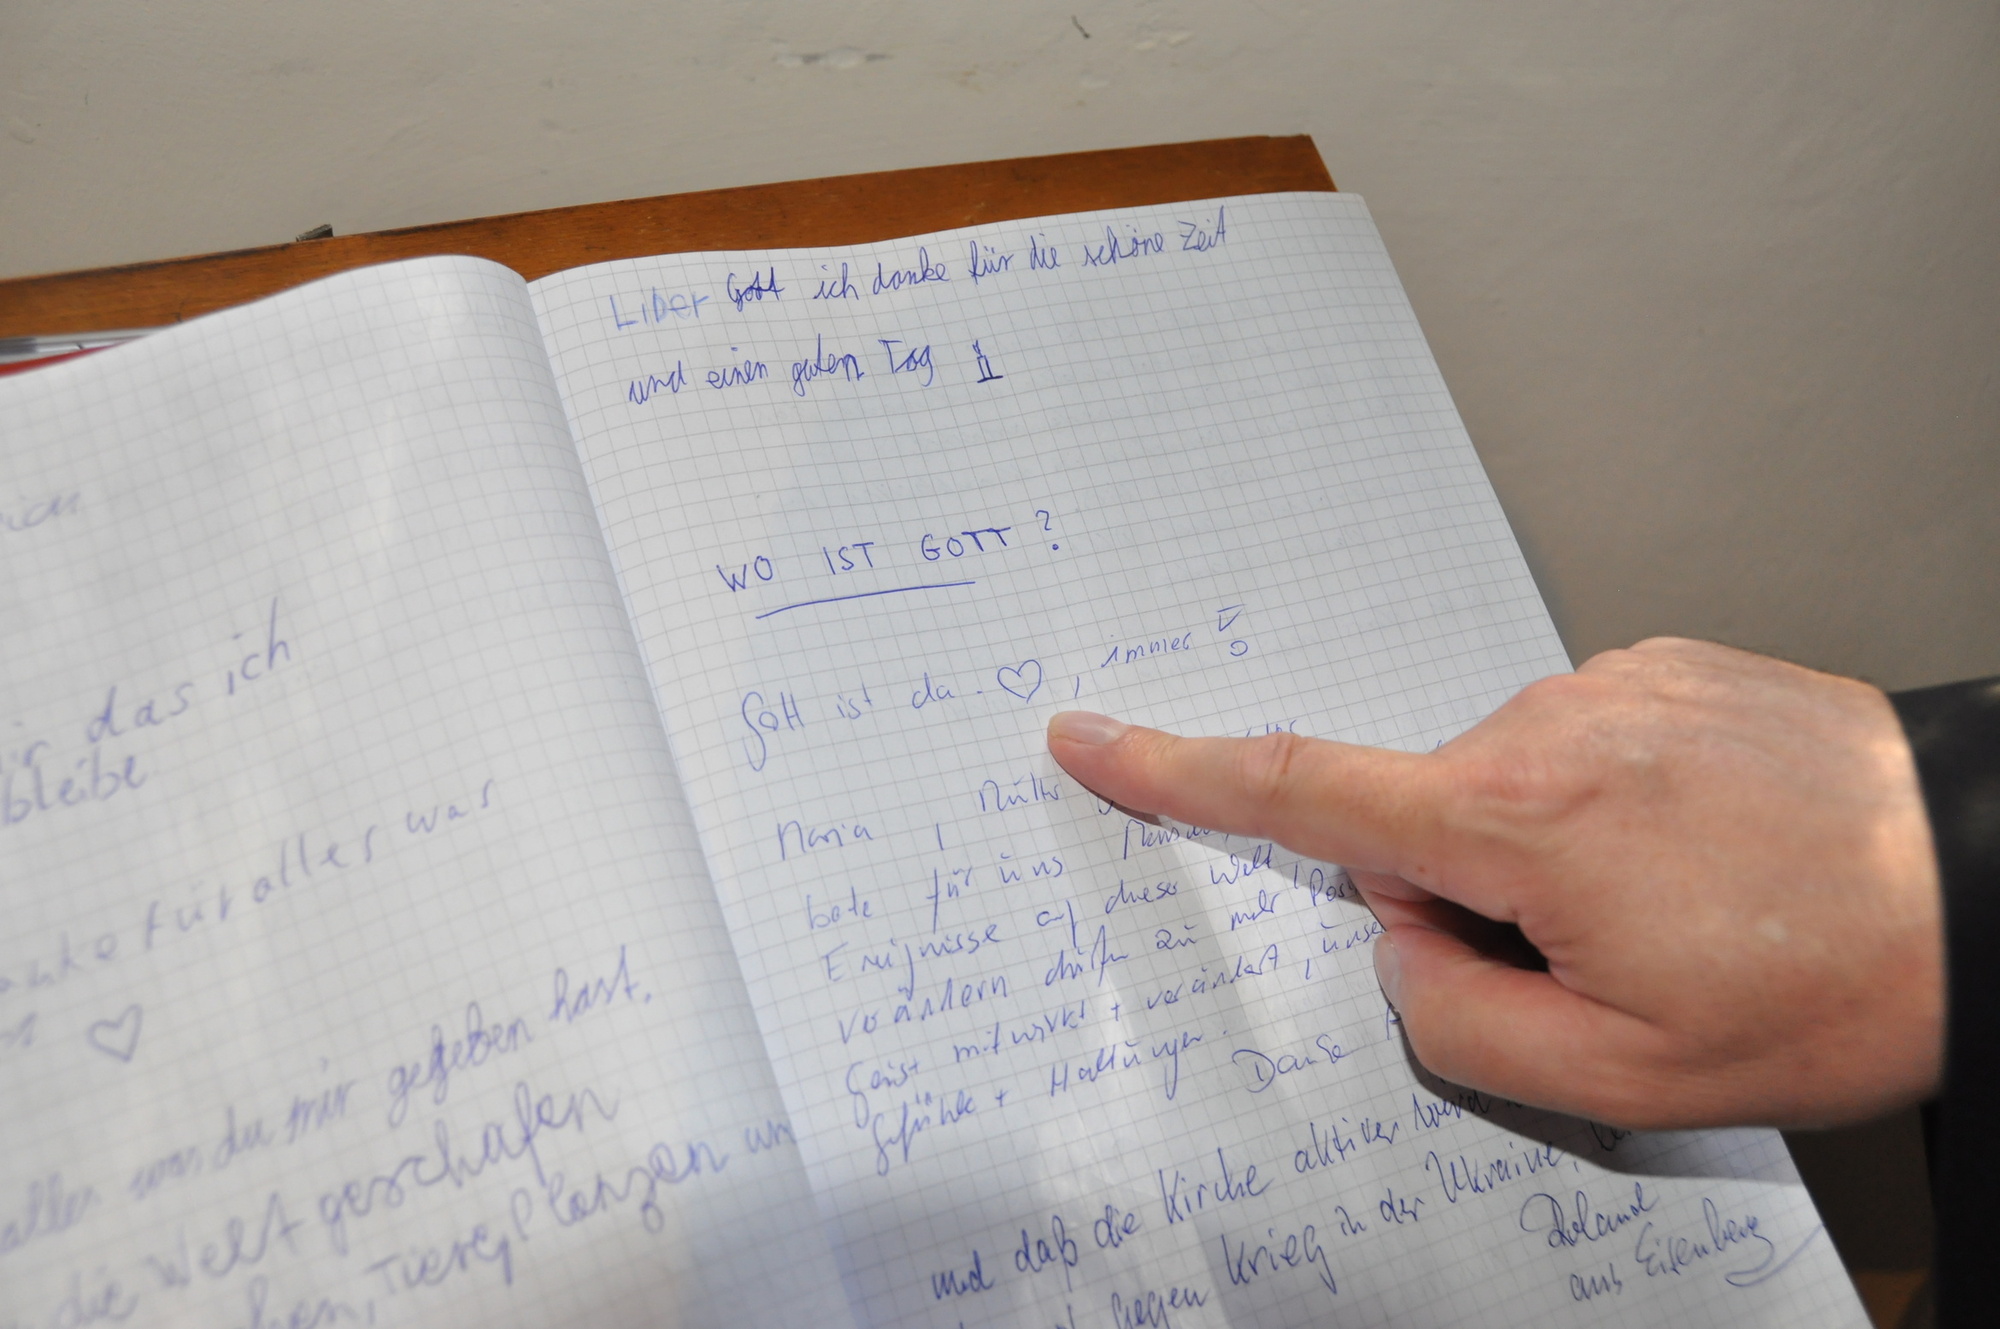 ich
mir das ich
bleibe
danke für aller was
aller was du mir gegeben hast.
die Welt geschafen
Tiere, Pflanzen un
Liber Gott ich danke für die schöne Zeit
und einen guten Tag
WO IST GOTT ?
Gott ist da - ♡, immer !
Maria , Mutter
bete für uns
Ereignisse auf dieser Welt
verändern dürfen zu mehr
Geist mitwirkt + verändert, unse
Gefühle + Haltungen. Danke
und daß die Kirche aktiver wird
gegen Krieg in der Ukraine,
Roland
aus Eisenberg